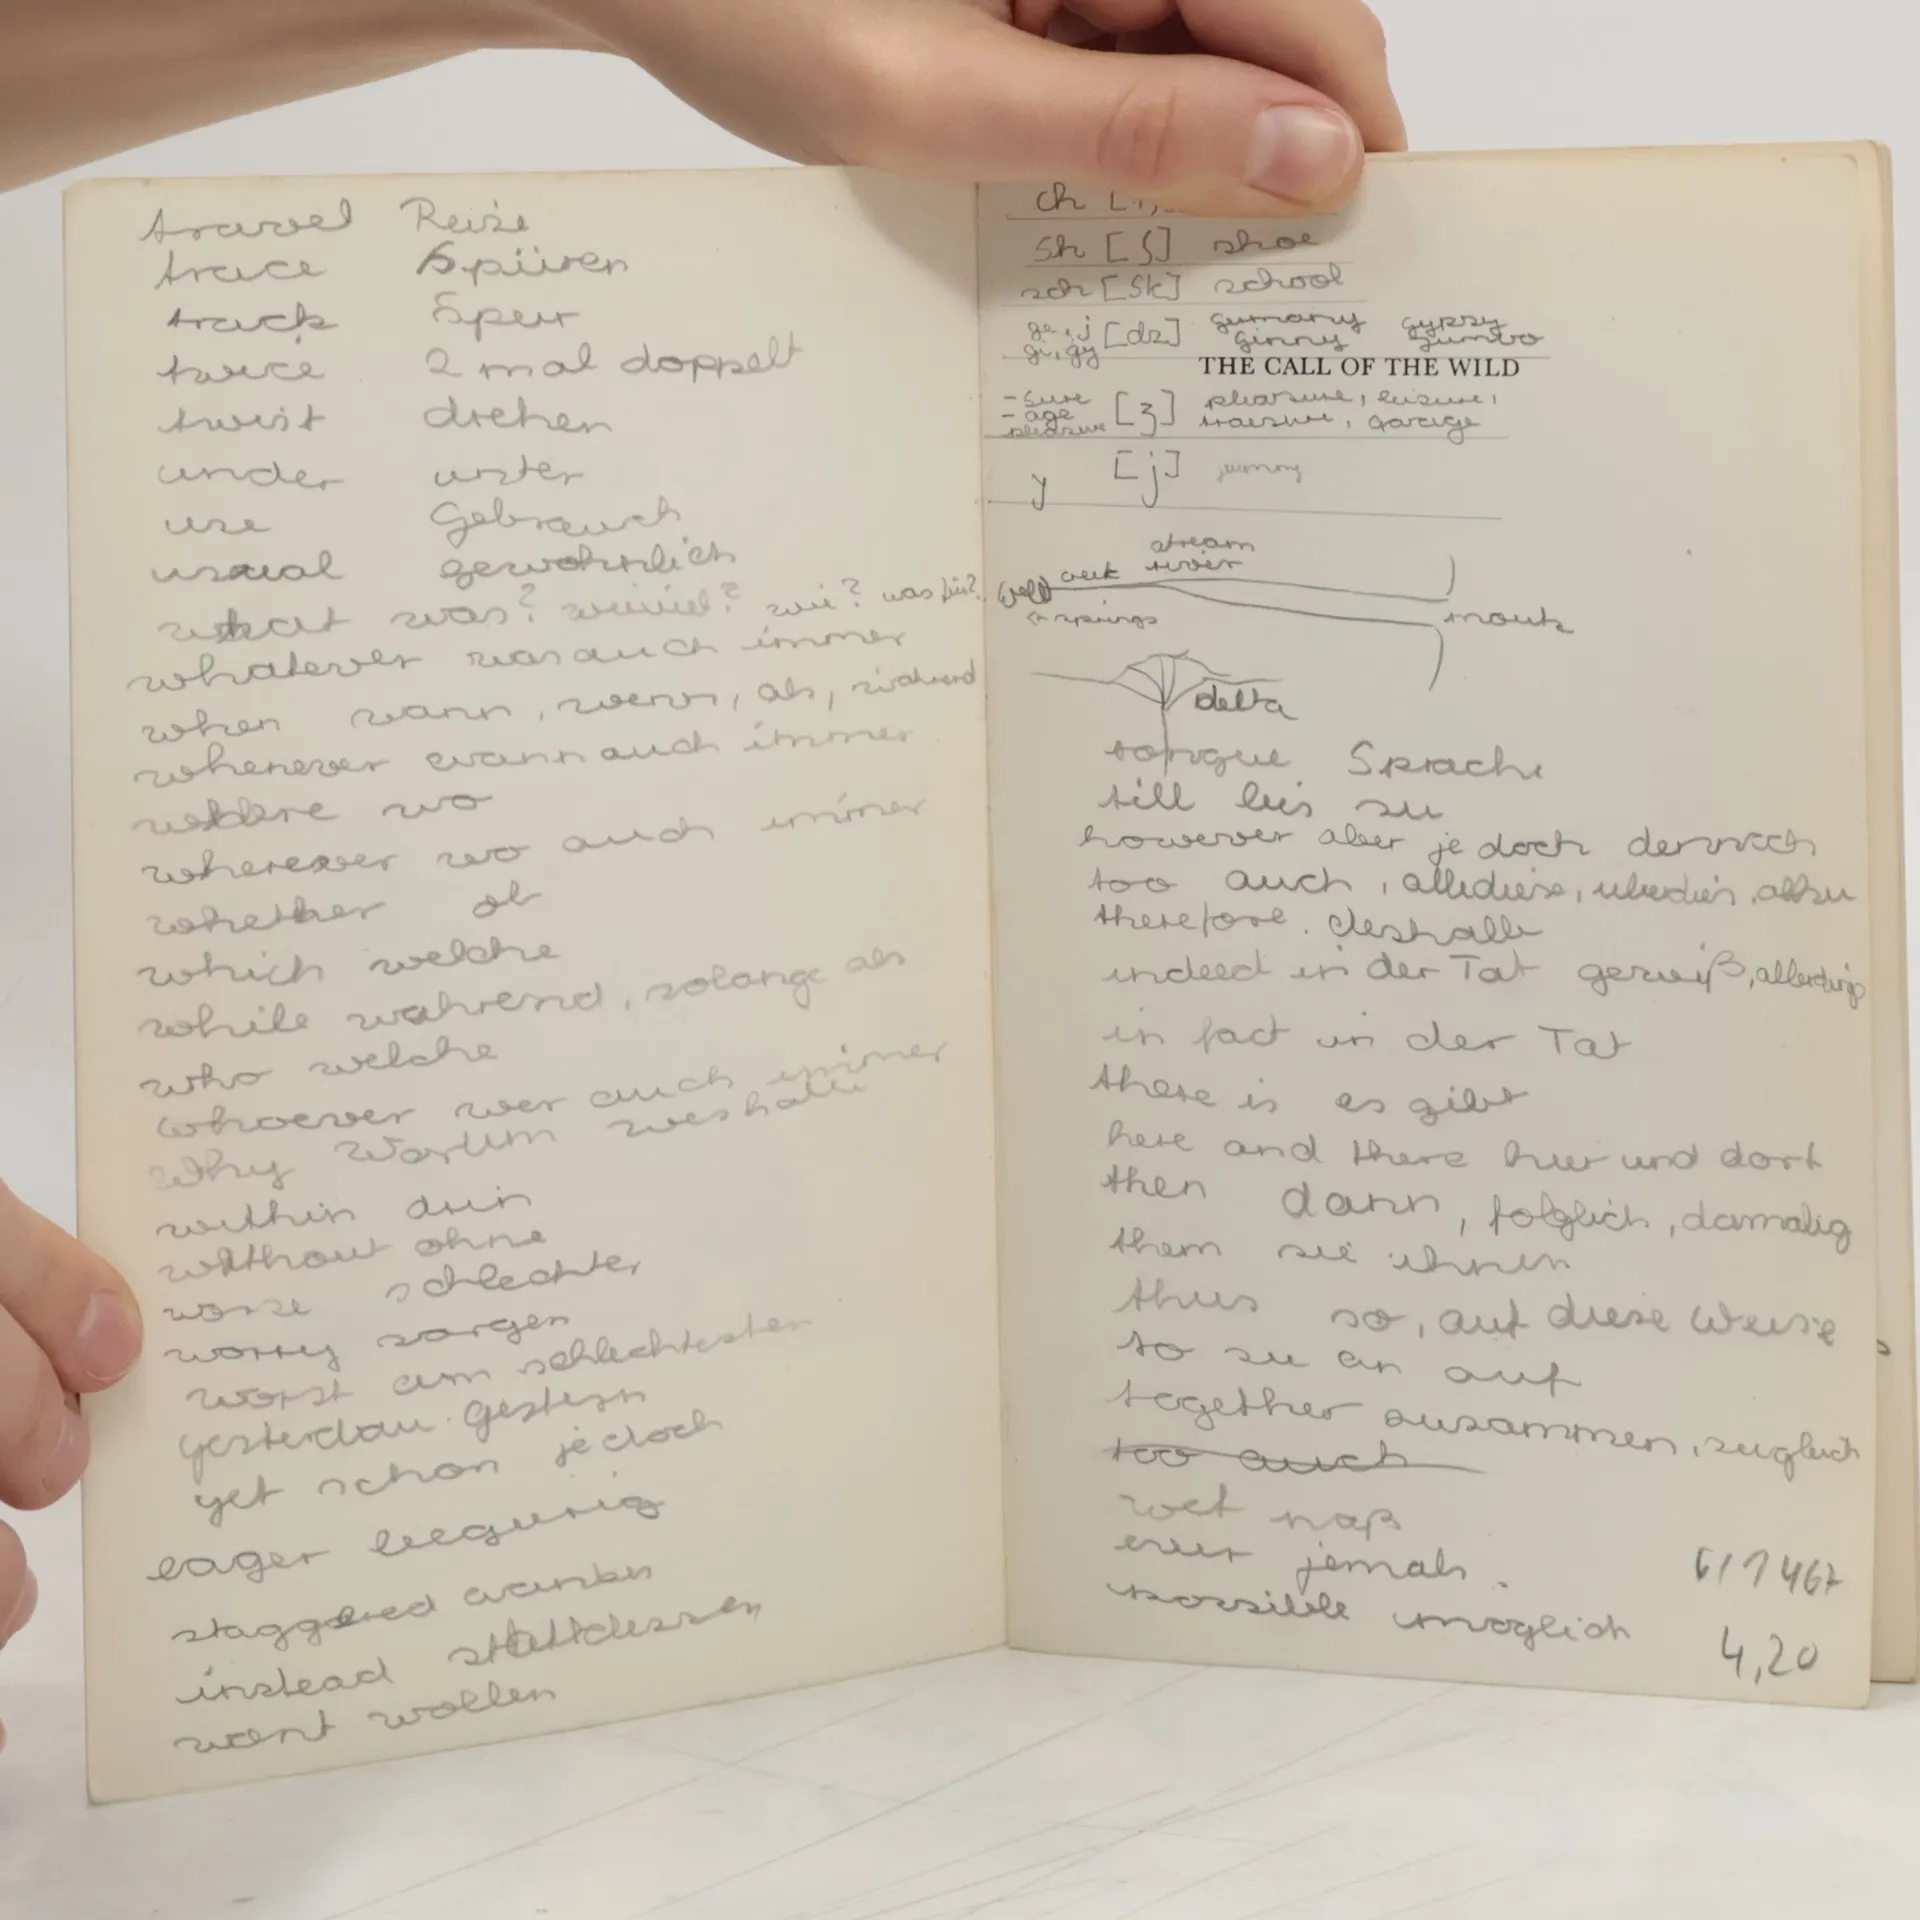 travel Reise
trace Spüren
track Spur
twice 2 mal doppelt
twist drehen
under unter
use Gebrauch
usual gewöhnlich
what was? wieviel? wie? was für?
whatever was auch immer
when wann, wenn, als, während
whenever wann auch immer
where wo
wherever wo auch immer
whether ob
which welche
while während, solange als
who welche
whoever wer auch immer
why Warum weshalb
within drin
without ohne
worse schlechter
worry sorgen
worst am schlechtesten
yesterday gestern
yet schon jedoch
eager begierig
staggered wanken
instead stattdessen
want wollen
ch
sh [ʃ] shoe
sch [sk] school
ge, j [dʒ] germany gypsy
gi, gy ginny jumbo
THE CALL OF THE WILD
- sure [ʒ] pleasure, leisure,
- age treasure, garage
pleasure
y [j]
stream
creek river
springs mouth
delta
tongue Sprache
till bis zu
however aber jedoch dennoch
too auch, alldiese, überdies, allzu
therefore. deshalb
indeed in der Tat gewiß, allerdings
in fact in der Tat
there is es gibt
here and there hier und dort
then dann, folglich, damalig
them sie ihnen
thus so, auf diese Weise
to zu an auf
together zusammen, zugleich
too auch
wet naß
ever jemals.
possible möglich
617467
4,20